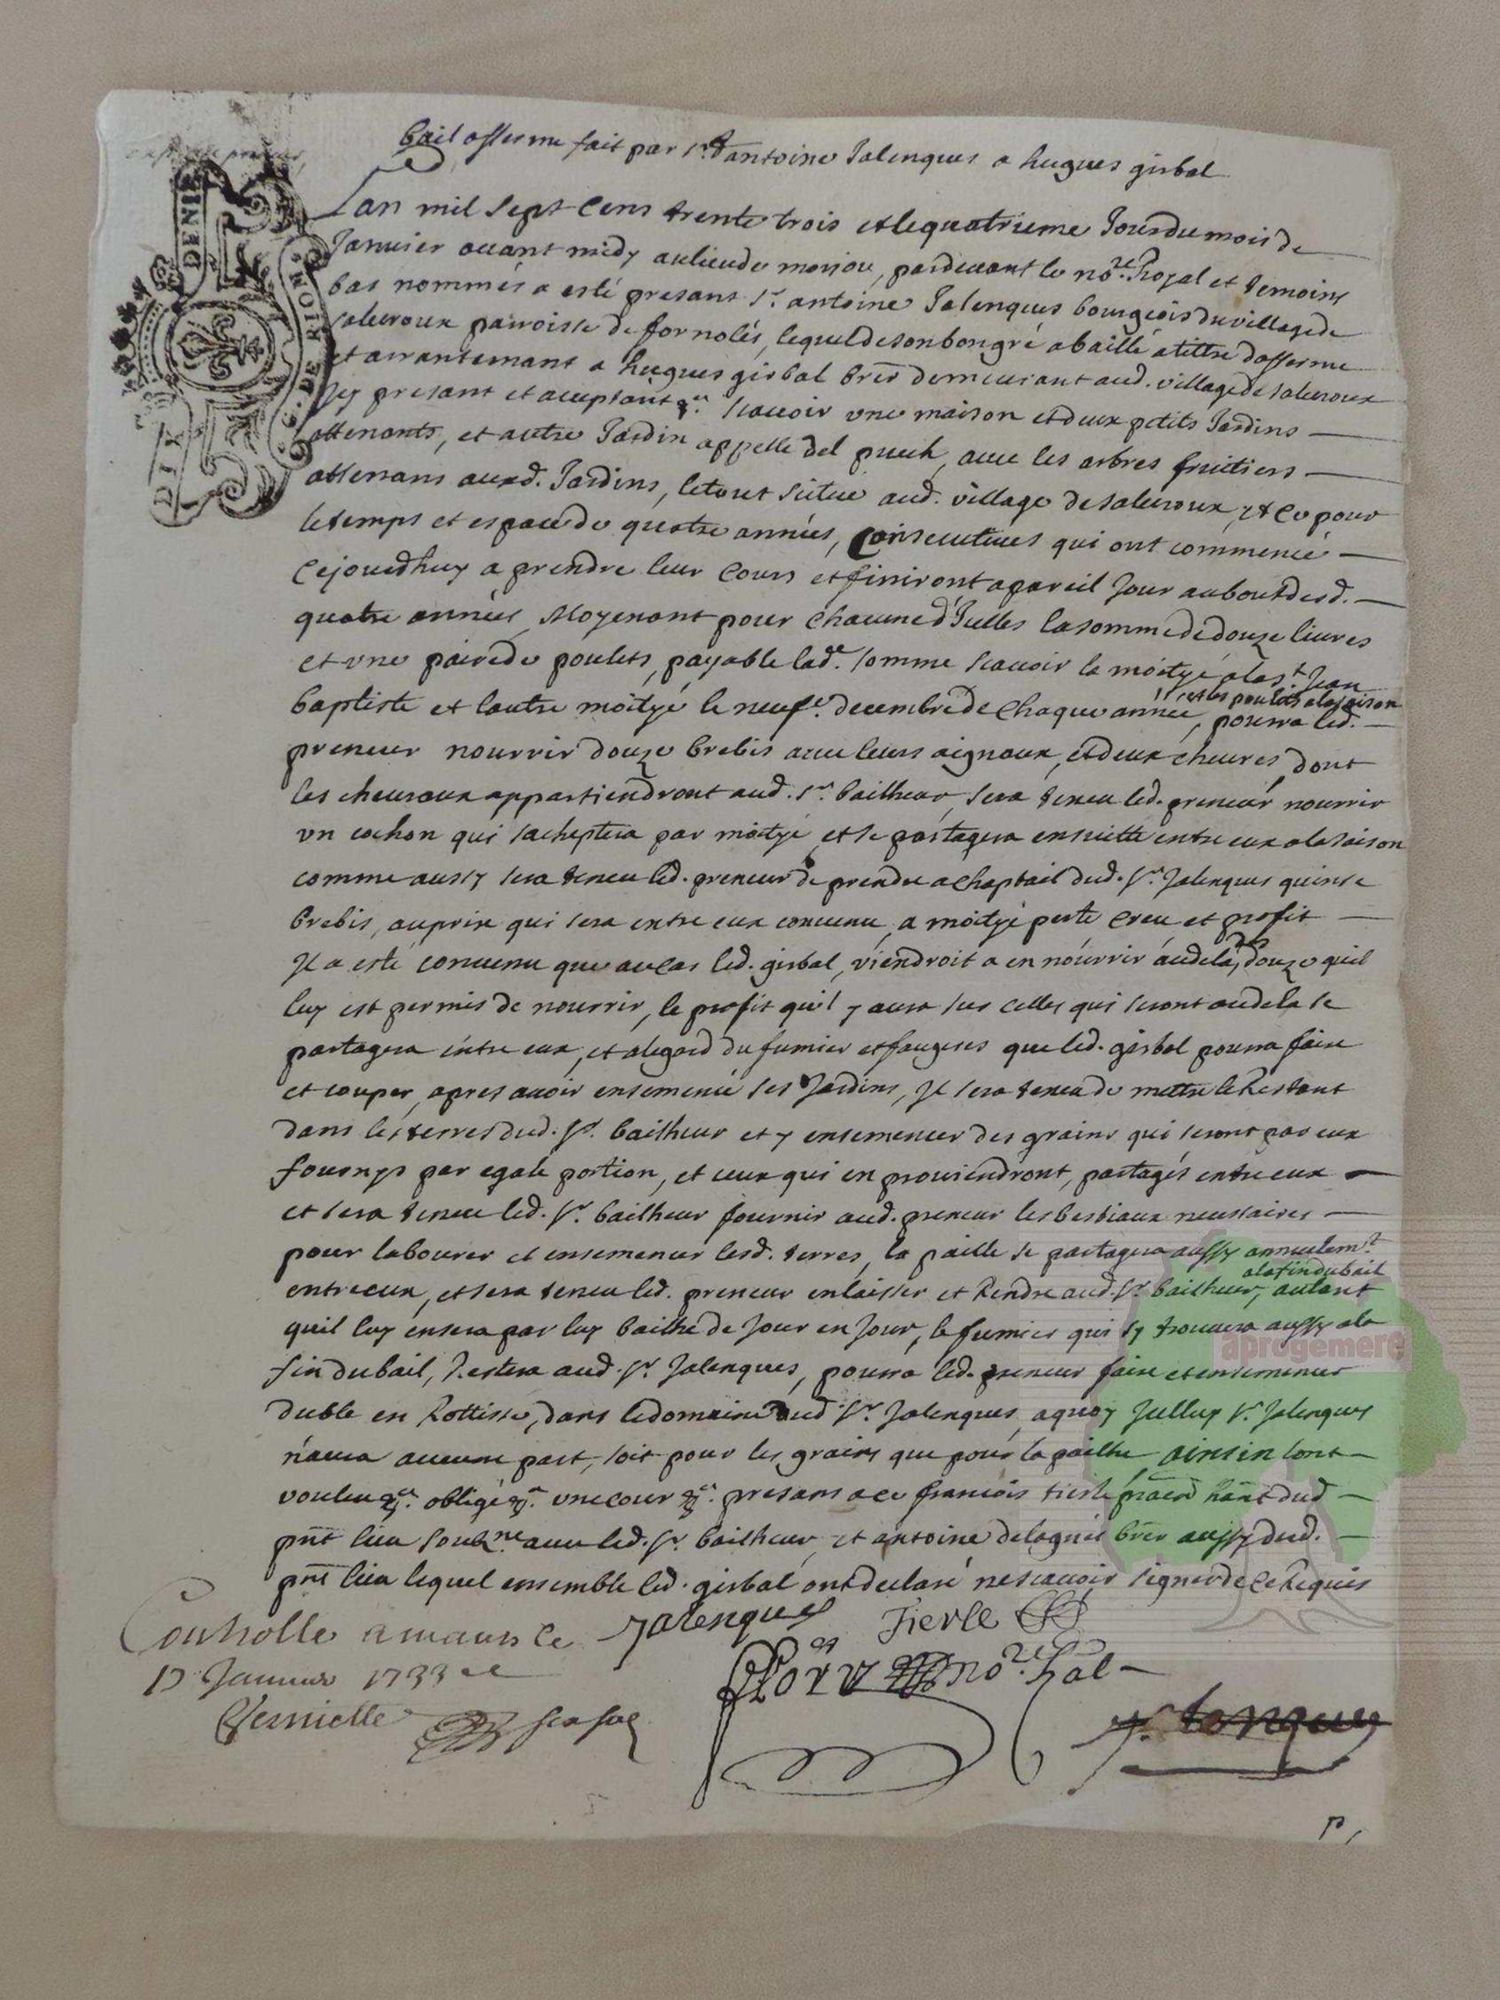 bail afferme fait par Sr antoine Jalenques a hugues girbal
DIX DENIE
G. DE RIOM
Lan mil sept cens trente trois et le quatrieme Jour du mois de
Janvier avant midy au lieu de monjou, pardevant le nore. Royal et temoins
bas nommés a esté presant sr. antoine Jalenques bourgeois du village de
salecroux parroisse de fornolés, lequel de son bon gré a baillé a tittre dafferme
et arrantemant a hugues girbal brer demeurant aud. village de salecroux
Jcy presant et aceptant scavoir une maison et deux petits Jardins
attenants, et autre Jardin appellé del puech, avec les arbres fruitiers
attenans auxd. Jardins, le tout situe aud. village de salecroux, et ce pour
le temps et espace de quatre années, Consecutives qui ont commencé
Cejourdhuy a prendre leur Cours et finiront a pareil Jour au bout desd.
quatre années, Moyenant pour chacune d'Jcelles la somme de douze livres
et une paire de poulets, payable lade. somme scavoir la moityé a la st. Jean
baptiste et lautre moityé le neufe. decembre de chaque année, pourra led.
et les poulets a la saison
preneur nourrir douze brebis avec leurs aignaux, et deux chevres, dont
les chevraux appartiendront aud. sr. bailheur, sera teneu led. preneur nourrir
un cochon qui sacheptera par moityé et se partagera ensuitte entre eux a la saison
comme aussy sera teneu led. preneur de prendre a chaptail dud. sr. Jalenques quinse
brebis, au prix qui sera entre eux convenu, a moityé perte creu et profit
Jl a esté convenu que au cas led. girbal, viendroit a en nourrir audela des douze quil
luy est permis de nourrir, le profit quil y aura sur celles qui seront audela se
partagera entre eux, et alegard du fumier et faugeres que led. girbal pourra faire
et couper, apres avoir ensemencé ses Jardins, Jl sera teneu de mettre le Restant
dans les terres dud. sr. bailheur et y ensemencer des grains qui seront par eux
fournys par egale portion, et ceux qui en proviendront, partagés entre eux
et sera teneu led. sr. bailheur fournir aud. preneur les bestiaux necessaires
pour labourer et ensemencer lesd. terres, la paille se partagera aussy annuelemt.
entre eux, et sera teneu led. preneur en laisser et Rendre aud. sr. bailheur, autant
a la fin du bail
quil luy en sera par luy bailhé de Jour en Jour, le fumier qui sy trouvera aussy a la
fin du bail, Restera aud. sr. Jalenques, pourra led. preneur faire et ensemencer
du ble en Rottisse, dans le domaine dud. sr. Jalenques, a quoy Jcelluy sr. Jalenques
n'aura aucune part, soit pour les grains que pour la pailhe ainsin lont
vouleu obligé une cour presans a ce francois tierle hant dud
pnt lieu soubzne. avec led. sr. bailheur, et antoine delagnés brer aussy dud.
pnt lieu lequel ensemble led. girbal ont declaré ne scavoir signer de ce Requis
Jalenques Fierle
Controlle a maurs le
17 Janvier 1733
nore. Ral
aprogemere